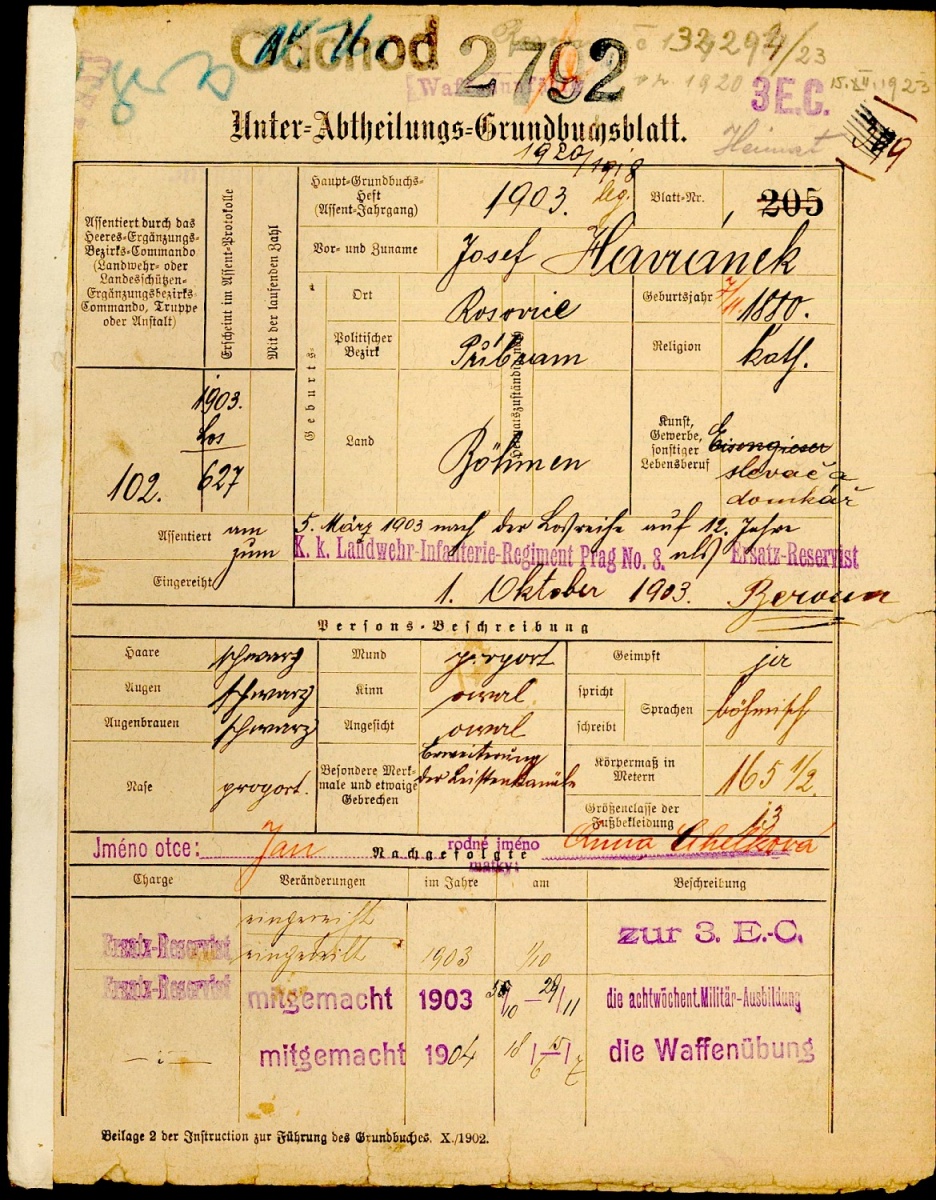 Odchod
2792
č 132,294/23
1920
15.XII.1923
3E.C.
Heimat
Unter-Abtheilungs-Grundbuchsblatt.
1920/1918
Assentiert durch das Heeres-Ergänzungs-Bezirks-Commando (Landwehr- oder Landesschützen-Ergänzungsbezirks-Commando, Truppe oder Anstalt)
Erscheint im Assent-Protokolle
Mit der laufenden Zahl
Haupt-Grundbuchs-Heft (Assent-Jahrgang)
1903. leg.
Blatt-Nr.
205
Vor- und Zuname
Josef Havránek
Geburts-
Ort
Rosovice
Geburtsjahr
7/11 1880.
Politischer Bezirk
Příbram
Heimatszuständigkeits
Religion
kath.
Land
Böhmen
Kunst, Gewerbe, sonstiger Lebensberuf
Eisengiesser
slevač a
domkář
1903.
Los
102. 627
Assentiert am 5. März 1903 nach der Losreihe auf 12 Jahre
zum K. k. Landwehr-Infanterie-Regiment Prag No. 8. als Ersatz-Reservist
Eingereiht 1. Oktober 1903. Beroun
Persons-Beschreibung
Haare schwarz Mund proport Geimpft ja
Augen schwarz Kinn owal spricht Sprachen böhmisch
Augenbrauen schwarz Angesicht owal schreibt
Nase proport. Besondere Merkmale und etwaige Gebrechen Erweiterung der Leistenkanäle Körpermaß in Metern 165 1/2
Größenclasse der Fußbekleidung 13
Jméno otce: Jan Nachgefolgte rodné jméno matky: Anna Chelíková
Charge Veränderungen im Jahre am Beschreibung
eingereiht
Ersatz-Reservist eingeteilt 1903 1/10 zur 3. E.-C.
Ersatz-Reservist mitgemacht 1903 /10 – 29/11 die achtwöchent. Militär-Ausbildung
mitgemacht 1904 18/6 – 15/7 die Waffenübung
Beilage 2 der Instruction zur Führung des Grundbuches. X./1902.